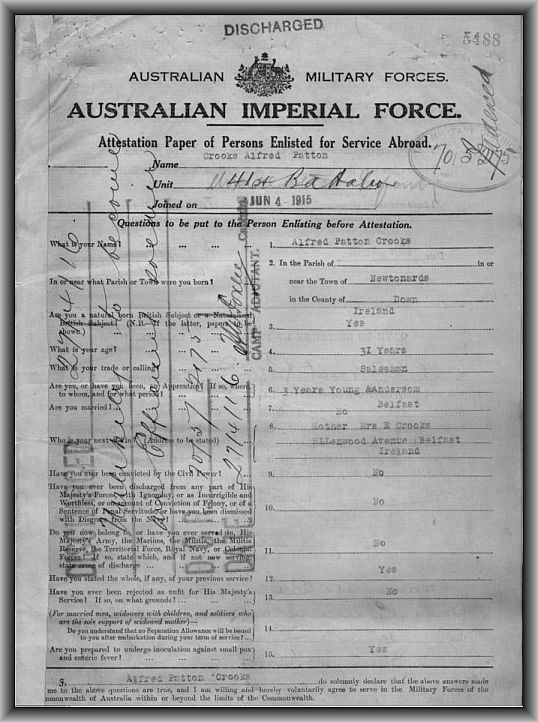 DISCHARGED
5488
AUSTRALIAN MILITARY FORCES.
AUSTRALIAN IMPERIAL FORCE.
Attestation Paper of Persons Enlisted for Service Abroad.
Name Crooks Alfred Patton
Unit 41st Battalion
Joined on JUN 4 1915
Questions to be put to the Person Enlisting before Attestation.
What is your Name? ... ... ... 1. Alfred Patton Crooks
2. In the Parish of in or
In or near what Parish or Town were you born? near the Town of Newtonards
in the County of Down
Ireland
Are you a natural born British Subject or a Naturalized
British Subject? (N.B.—If the latter, papers to be
shown.) 3. Yes
What is your age? 4. 31 Years
What is your trade or calling? 5. Salesman
Are you, or have you been, an Apprentice? If so, where,
to whom, and for what period? 6. 3 Years Young & Anderson
Belfast
Are you married? 7. No
8. Mother Mrs E Crooks
Who is your next of kin? (Address to be stated) Ellenwood Avenue Belfast
Ireland
Have you ever been convicted by the Civil Power? 9. No
Have you ever been discharged from any part of His
Majesty's Forces, with Ignominy, or as Incorrigible and
Worthless, or on account of Conviction of Felony, or of a
Sentence of Penal Servitude, or have you been dismissed
with Disgrace from the Navy 10. No
Do you now belong to, or have you ever served in, His
Majesty's Army, the Marines, the Militia, the Militia
Reserve, the Territorial Force, Royal Navy, or Colonial
Forces? If so, state which, and if not now serving,
state cause of discharge 11. No
Have you stated the whole, if any, of your previous service? 12. Yes
Have you ever been rejected as unfit for His Majesty's
Service? If so, on what grounds? 13. No
(For married men, widowers with children, and soldiers who
are the sole support of widowed mother)—
Do you understand that no Separation Allowance will be issued
to you after embarkation during your term of service? 14.
Are you prepared to undergo inoculation against small pox
and enteric fever? 15. Yes
I, Alfred Patton Crooks do solemnly declare that the above answers made
me to the above questions are true, and I am willing and hereby voluntarily agree to serve in the Military Forces of the
mmonwealth of Australia within or beyond the limits of the Commonwealth.
DISCHARGED
27/4/16
CAMP ADJUTANT.